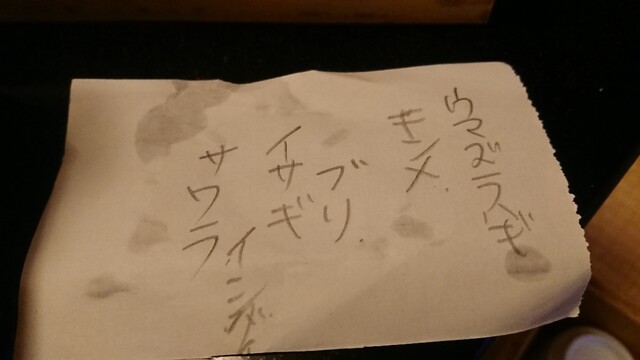 ウマズラハギ
キンメ
ブリ
イサギ
イシダイ
サワラ